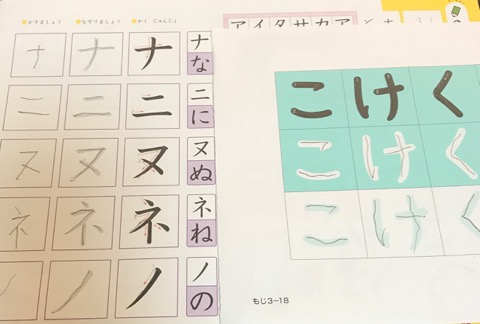 かきましょう なぞりましょう かく じゅんじょ
ナ ナ ナ ナ な
ニ ニ ニ ニ に
ヌ ヌ ヌ ヌ ぬ
ネ ネ ネ ネ ね
ノ ノ ノ ノ の
アイタサカア
こ け く
こ け く
こ け く
もじ3-18